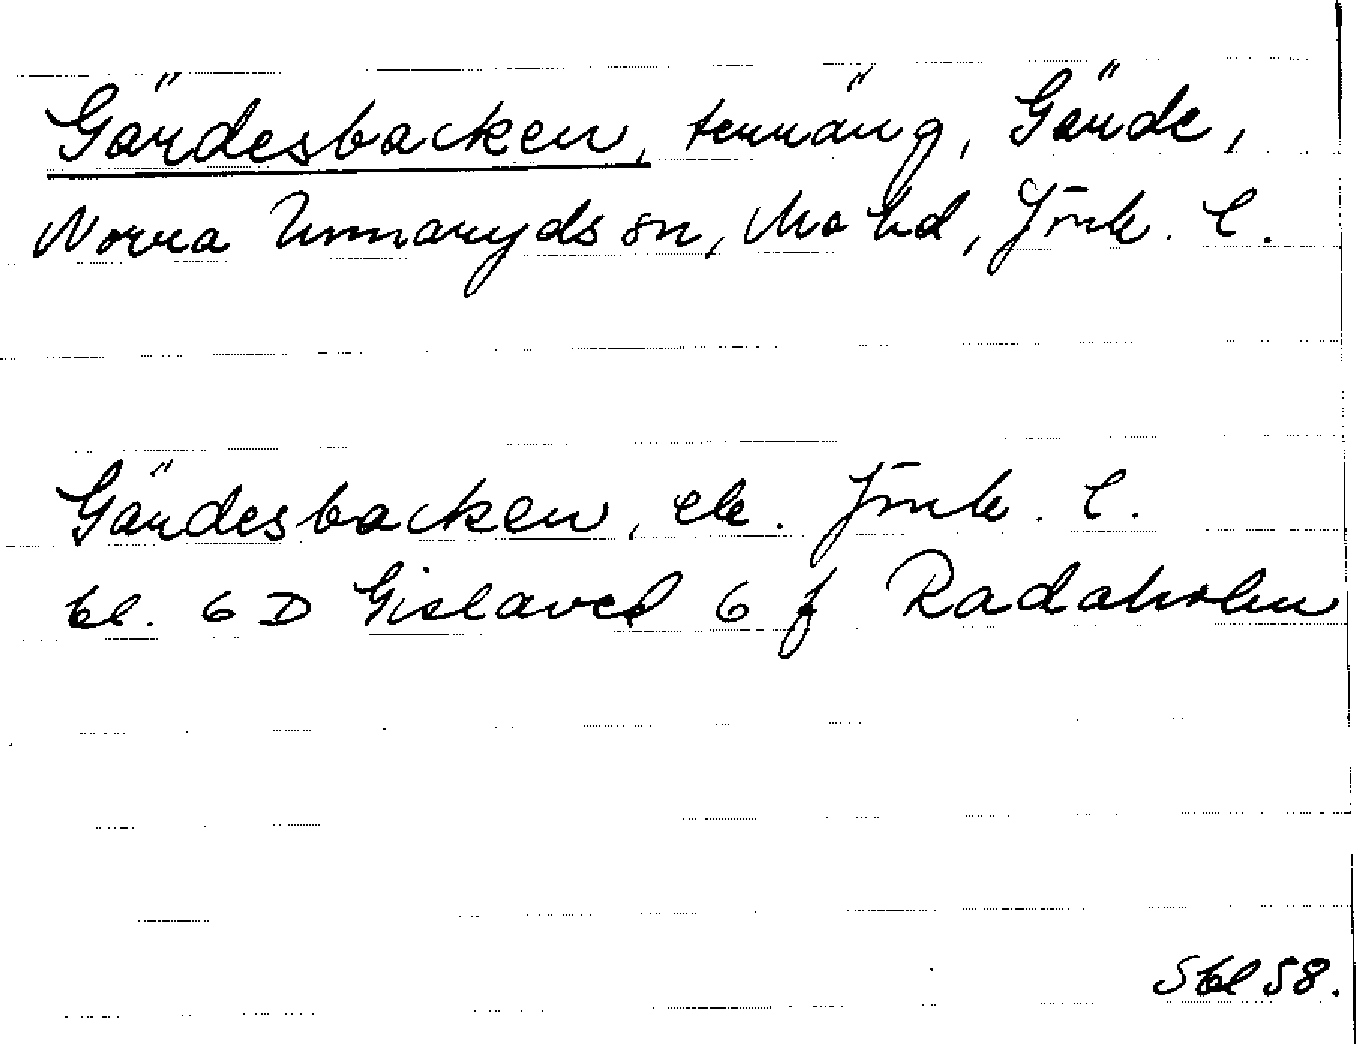 Gärdesbacken, terräng, Gärde,
Norra Unnaryds sn, Mo hd, Jönk. l.
Gärdesbacken, ek. Jönk. l.
bl. 6 D Gislaved 6 f Radaholm
Sbl 58.